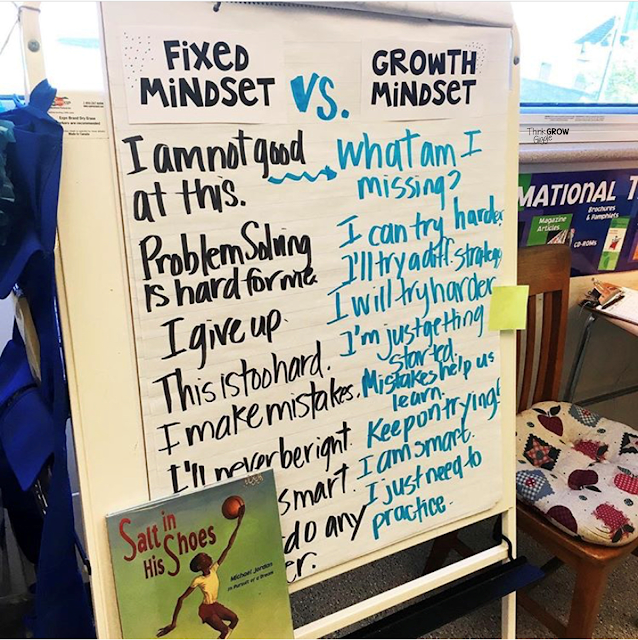 FIXED
MINDSET
VS.
GROWTH
MINDSET
I am not good
at this.
Problem Solving
is hard for me.
I give up.
This is too hard.
I make mistakes.
I'll never be right.
smart.
do any
er.
What am I
missing?
I can try harder
I'll try a diff. strategy
I will try harder
I'm just getting
started.
Mistakes help us
learn.
Keep on trying!
I am smart.
I just need to
practice.
Salt in
His Shoes
Michael Jordan
in Pursuit of a Dream
Think GROW
Giggle
MATIONAL T
Magazine
Articles
Brochures
& Pamphlets
CD-ROMs